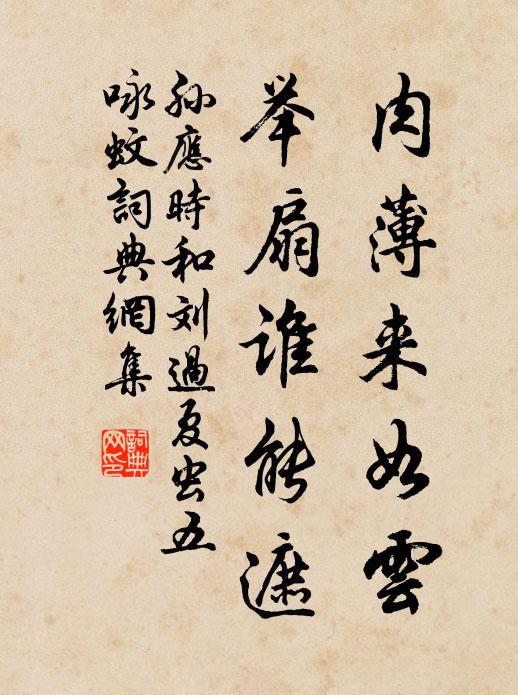 肉薄来如雲
举扇谁能遮
孙應時和刘過夏虫五
咏蚊詞典網集
詞典网印